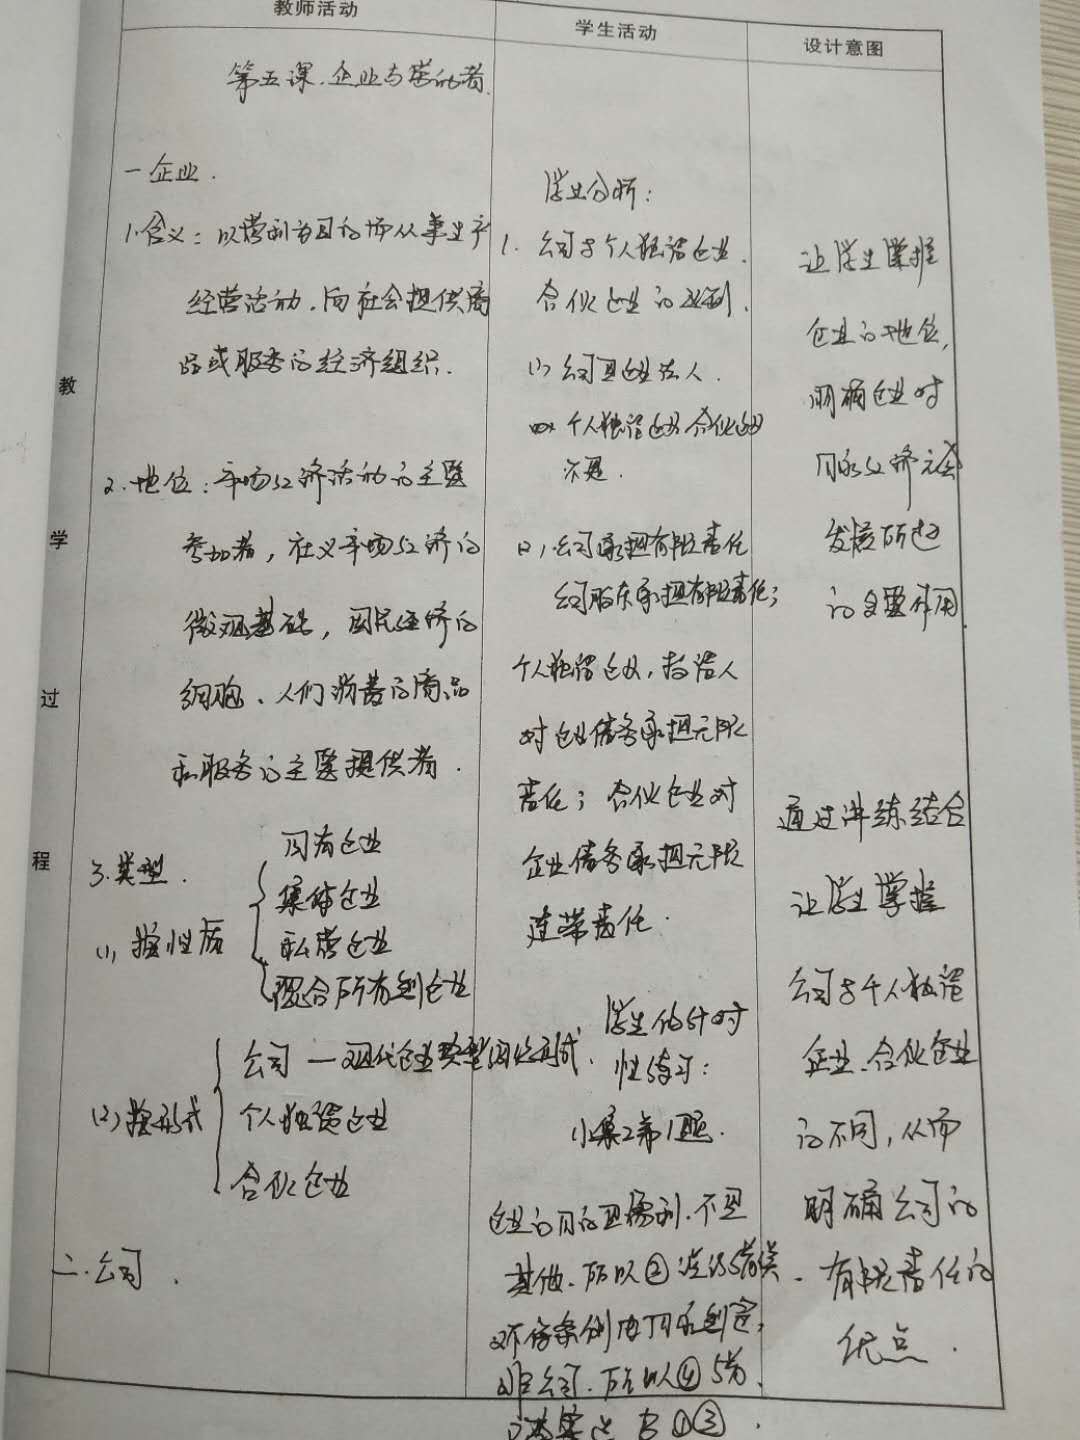 教师活动
学生活动
设计意图
教
学
过
程
第五课.企业与劳动者.
一 企业.
1.含义：以营利为目的而从事生产
经营活动.向社会提供商
品或服务的经济组织.
2.地位：市场经济活动的主要
参加者，社义市场经济的
微观基础，国民经济的
细胞、人们消费的商品
和服务的主要提供者.
3.类型.
(1),按性质
国有企业
集体企业
私营企业
混合所有制企业
(2)按形式
公司—现代企业典型形式.
个人独资企业
合伙企业
二.公司.
学生分析：
1. 公司与个人独资企业.
合伙企业的区别.
(1) 公司是企业法人.
个人独资企业 合伙企业
不是.
(2),公司承担有限责任
公司股东承担有限责任；
个人独资企业,投资人
对企业债务承担无限
责任；合伙企业对
企业债务承担无限
连带责任.
学生做针对
性练习：
小第1题.
企业的目的是营利.不是
其他.所以②说法错误
条例由国家制定,
非公司.所以④
答案选 B ①③.
让学生掌握
企业的地位,
明确企业对
国家经济
发展所起
的重要作用.
通过讲练结合
让学生掌握
公司与个人独资
企业、合伙企业
的不同,从而
明确公司的
有限责任的
优点.